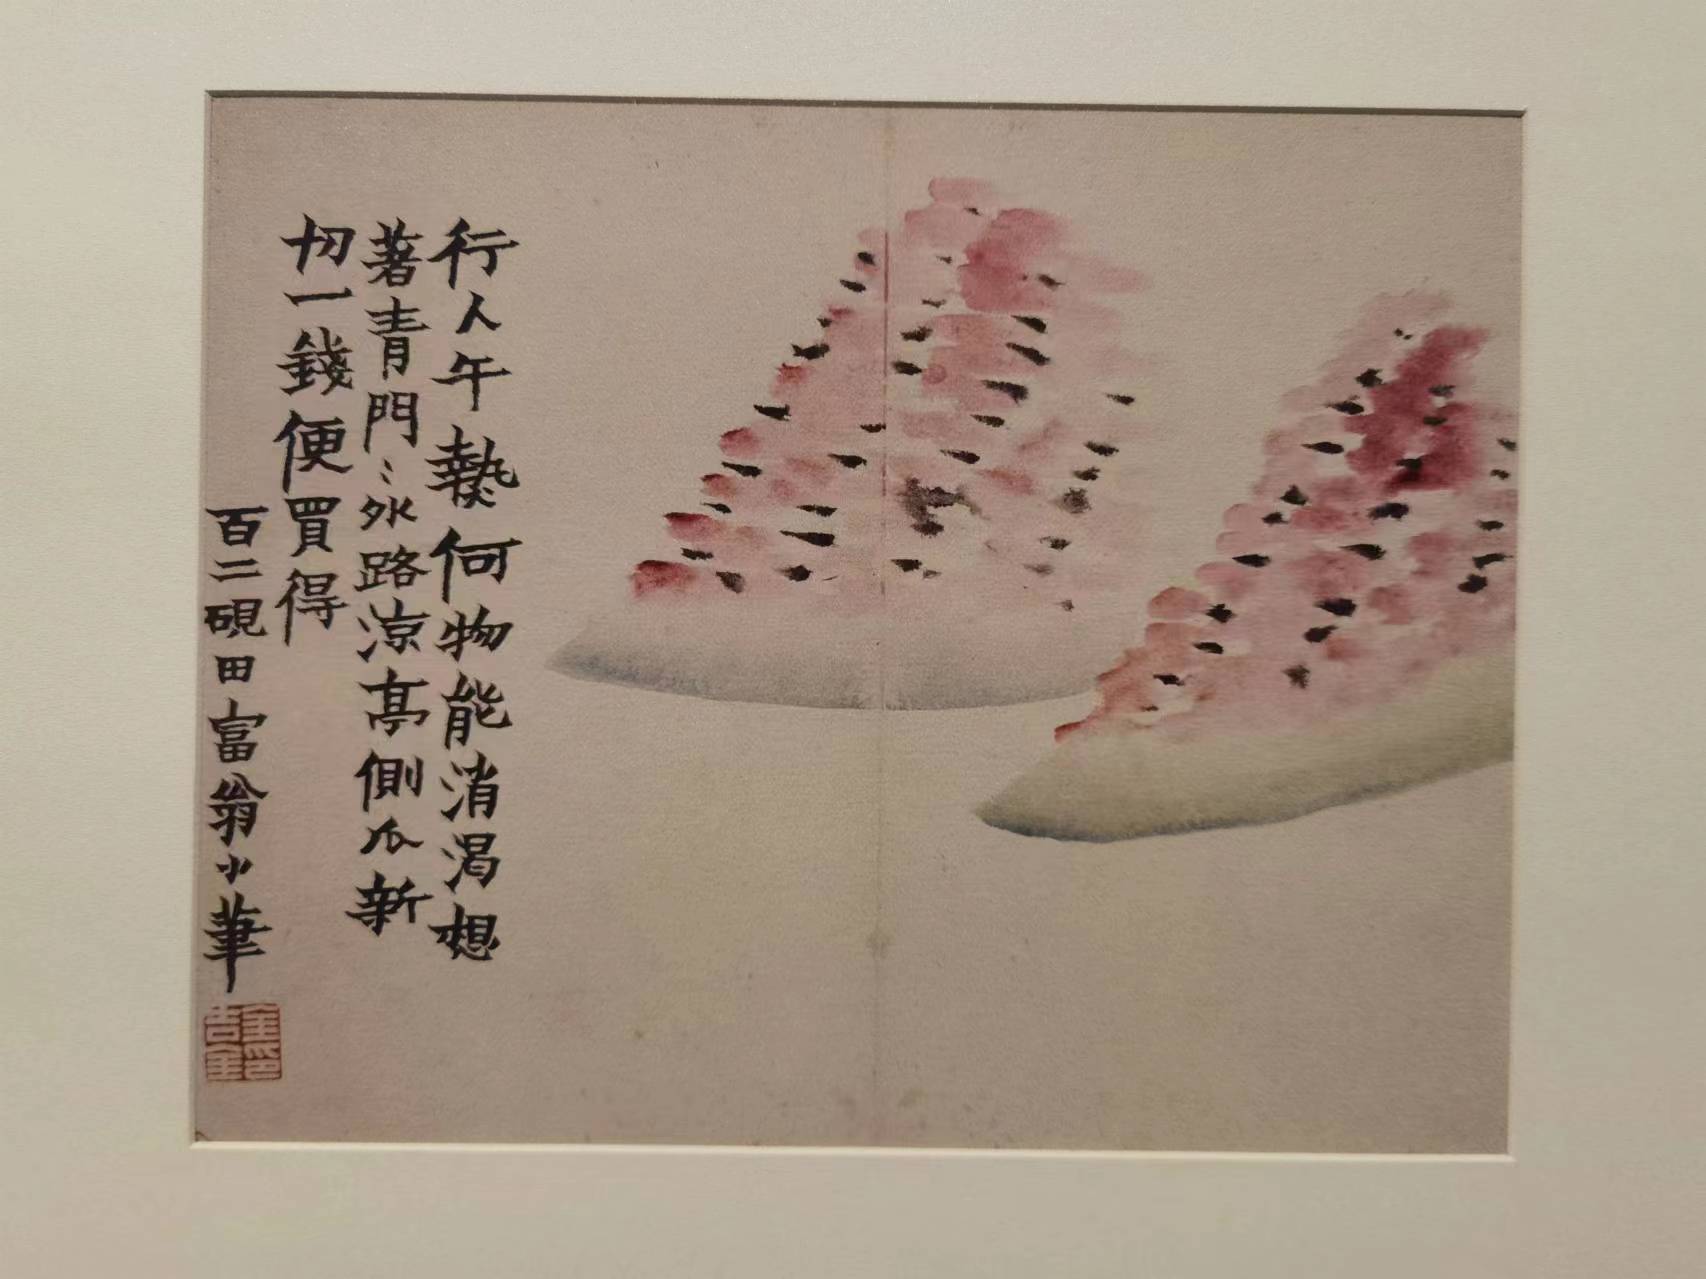 行人午熱何物能消渴想
著青門〻外路涼亭側瓜新
切一錢便買得
百二硯田富翁小筆
金吉金印